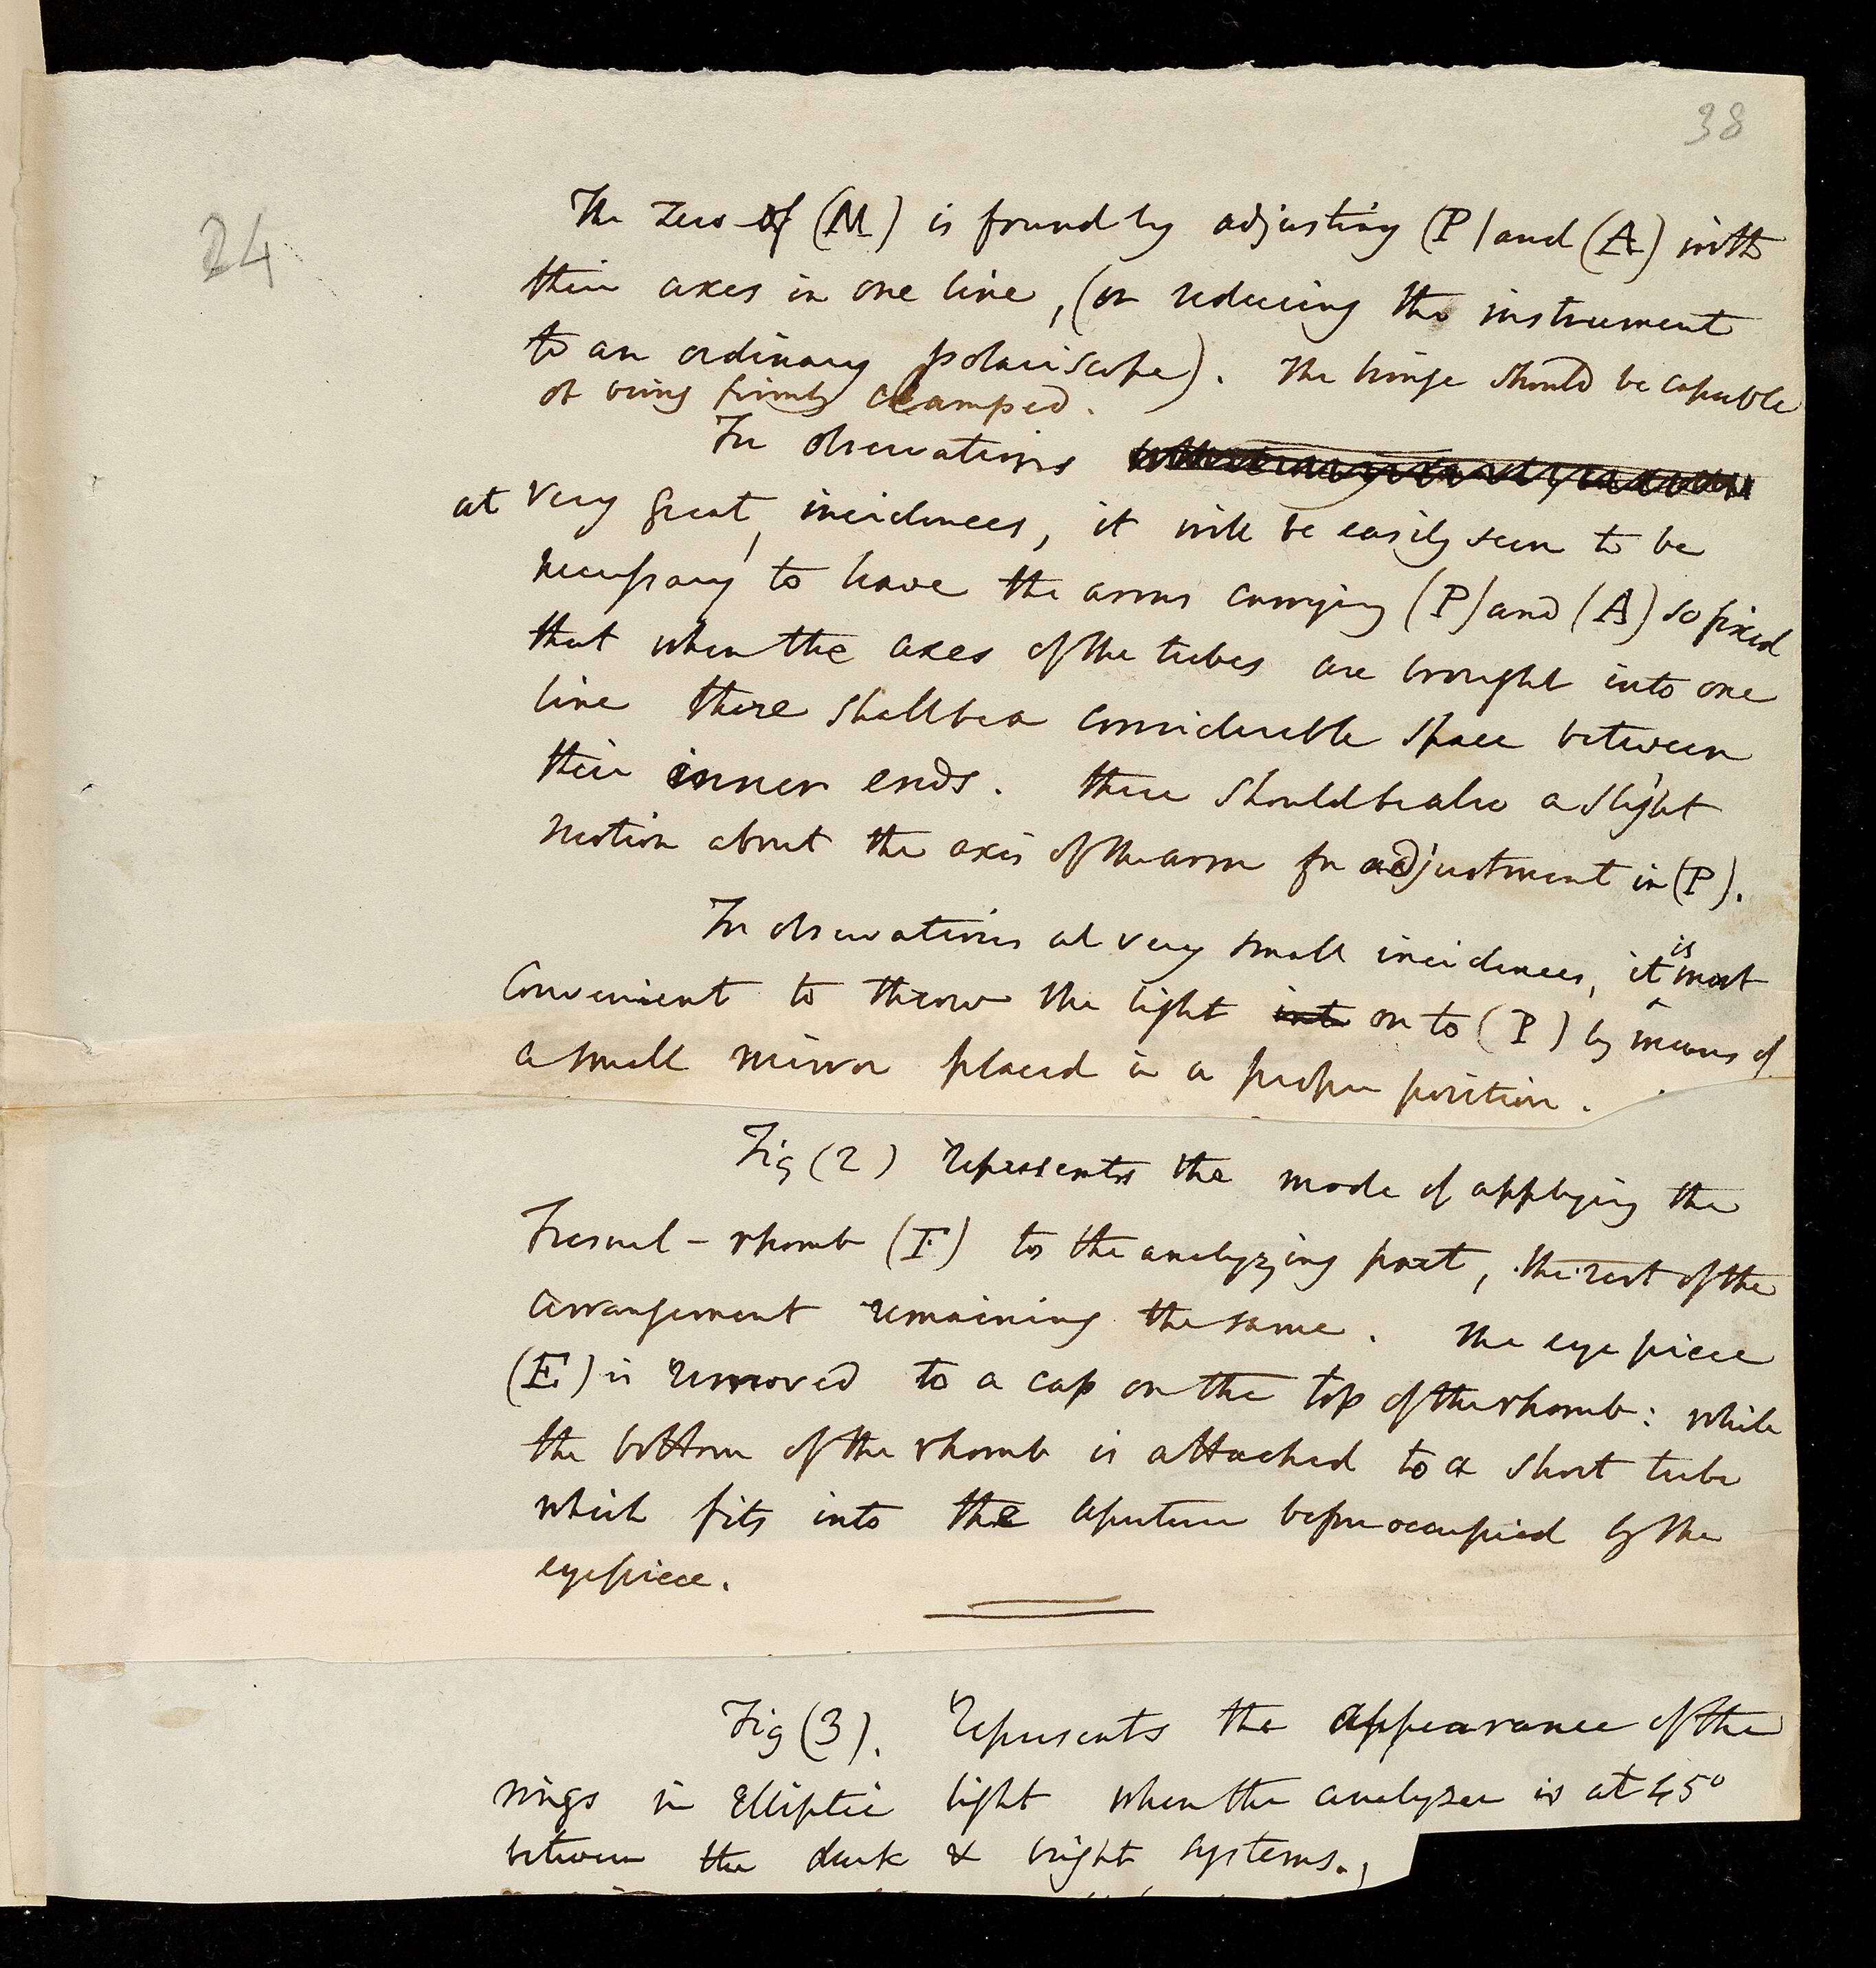 38
24
The zero of (M) is found by adjusting (P) and (A) with
their axes in one line, (or reducing the instrument
to an ordinary polariscope). The hinge should be capable
of being firmly clamped.
In observations
at very great incidences, it will be easily seen to be
necessary to have the arms carrying (P) and (A) so fixed
that when the axes of the tubes are brought into one
line there shall be a considerable space between
their inner ends. There should be also a slight
motion about the axis of the arm for adjustment in (P).
In observations at very small incidences, it is most
convenient to throw the light into on to (P) by means of
a small mirror placed in a proper position.
Fig (2) represents the mode of applying the
Fresnel-rhomb (F) to the analyzing part, the rest of the
arrangement remaining the same. The eye piece
(E) is removed to a cap on the top of the rhomb: while
the bottom of the rhomb is attached to a short tube
which fits into the aperture before occupied by the
eyepiece.
Fig (3). Represents the appearance of the
rings in elliptic light when the analyser is at 45°
between the dark & bright systems.,